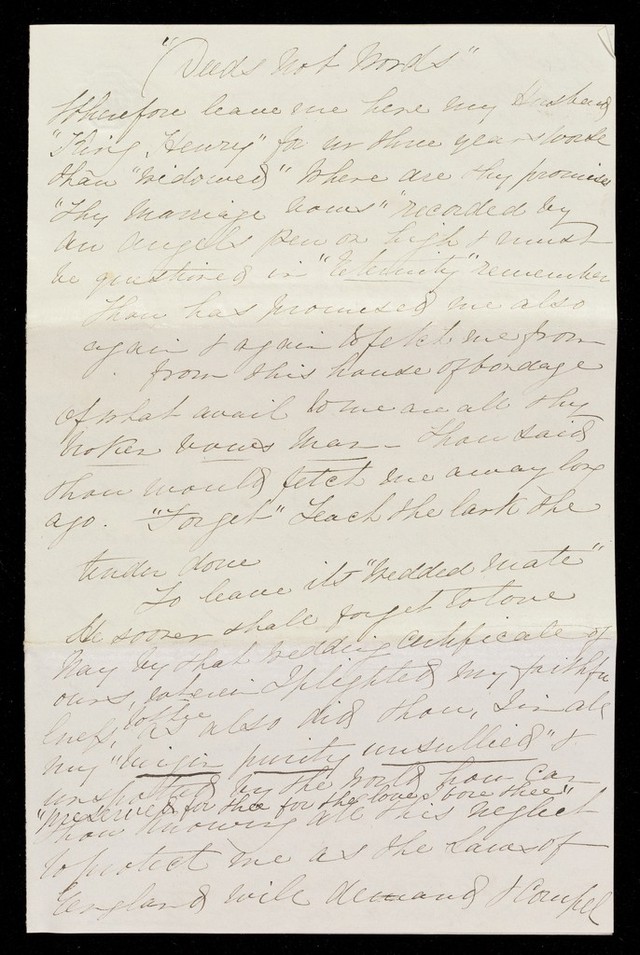 "Deeds Not Words"
Wherefore leave me here my Husband
"King Henry" for ur three years worse
than "widowed" Where are thy promises
"thy marriage vows" "recorded by
an Angels pen on high & must
be questioned in "Eternity" remember
Thou has promised me also
again & again to fetch me from
from this house of bondage
Of what avail to me are all thy
broken vows Man - Thou said
thou would fetch me away long
ago. "Forget" Teach the lark the
tender dove
To leave its "wedded mate"
He sooner shall forget to love
Nay by that wedding certificate of
ours, wherein I plighted my faithfu
lness, to thee as also did thou, I in all
my "virgin purity unsullied" &
unspotted by the world how can
"preserved for thee for the love I bore thee"
thou knowing all this neglect
to protect me as the Laws of
England will demand & compel